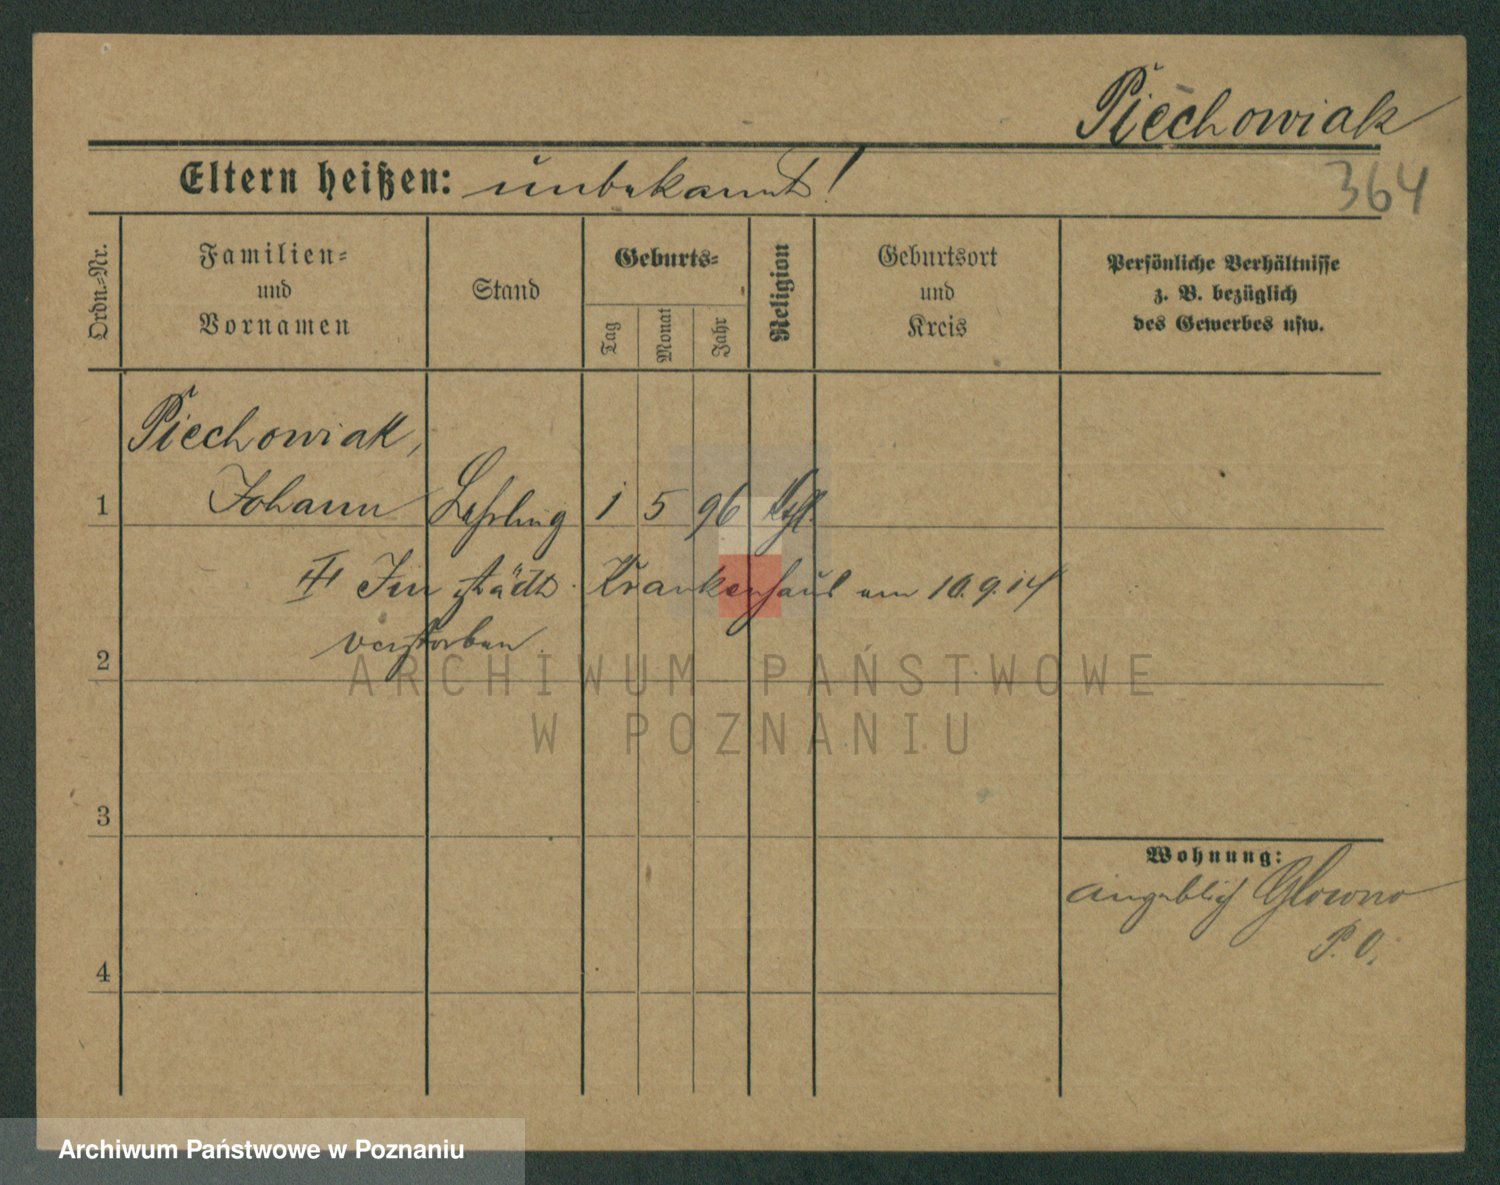 Piechowiak
364
Eltern heißen: unbekannt!
Ordn.-Nr.
Familien- und Vornamen
Stand
Geburts-
Tag
Monat
Jahr
Religion
Geburtsort und Kreis
Persönliche Verhältnisse
z. B. bezüglich
des Gewerbes usw.
Piechowiak,
1 Johann Lehrling 1 5 96 kth.
Im städt. Krankenhaus am 10.9.14
2 verstorben.
ARCHIWUM PAŃSTWOWE
W POZNANIU
3
Wohnung:
angeblich Glowno
P. O.
4
Archiwum Państwowe w Poznaniu